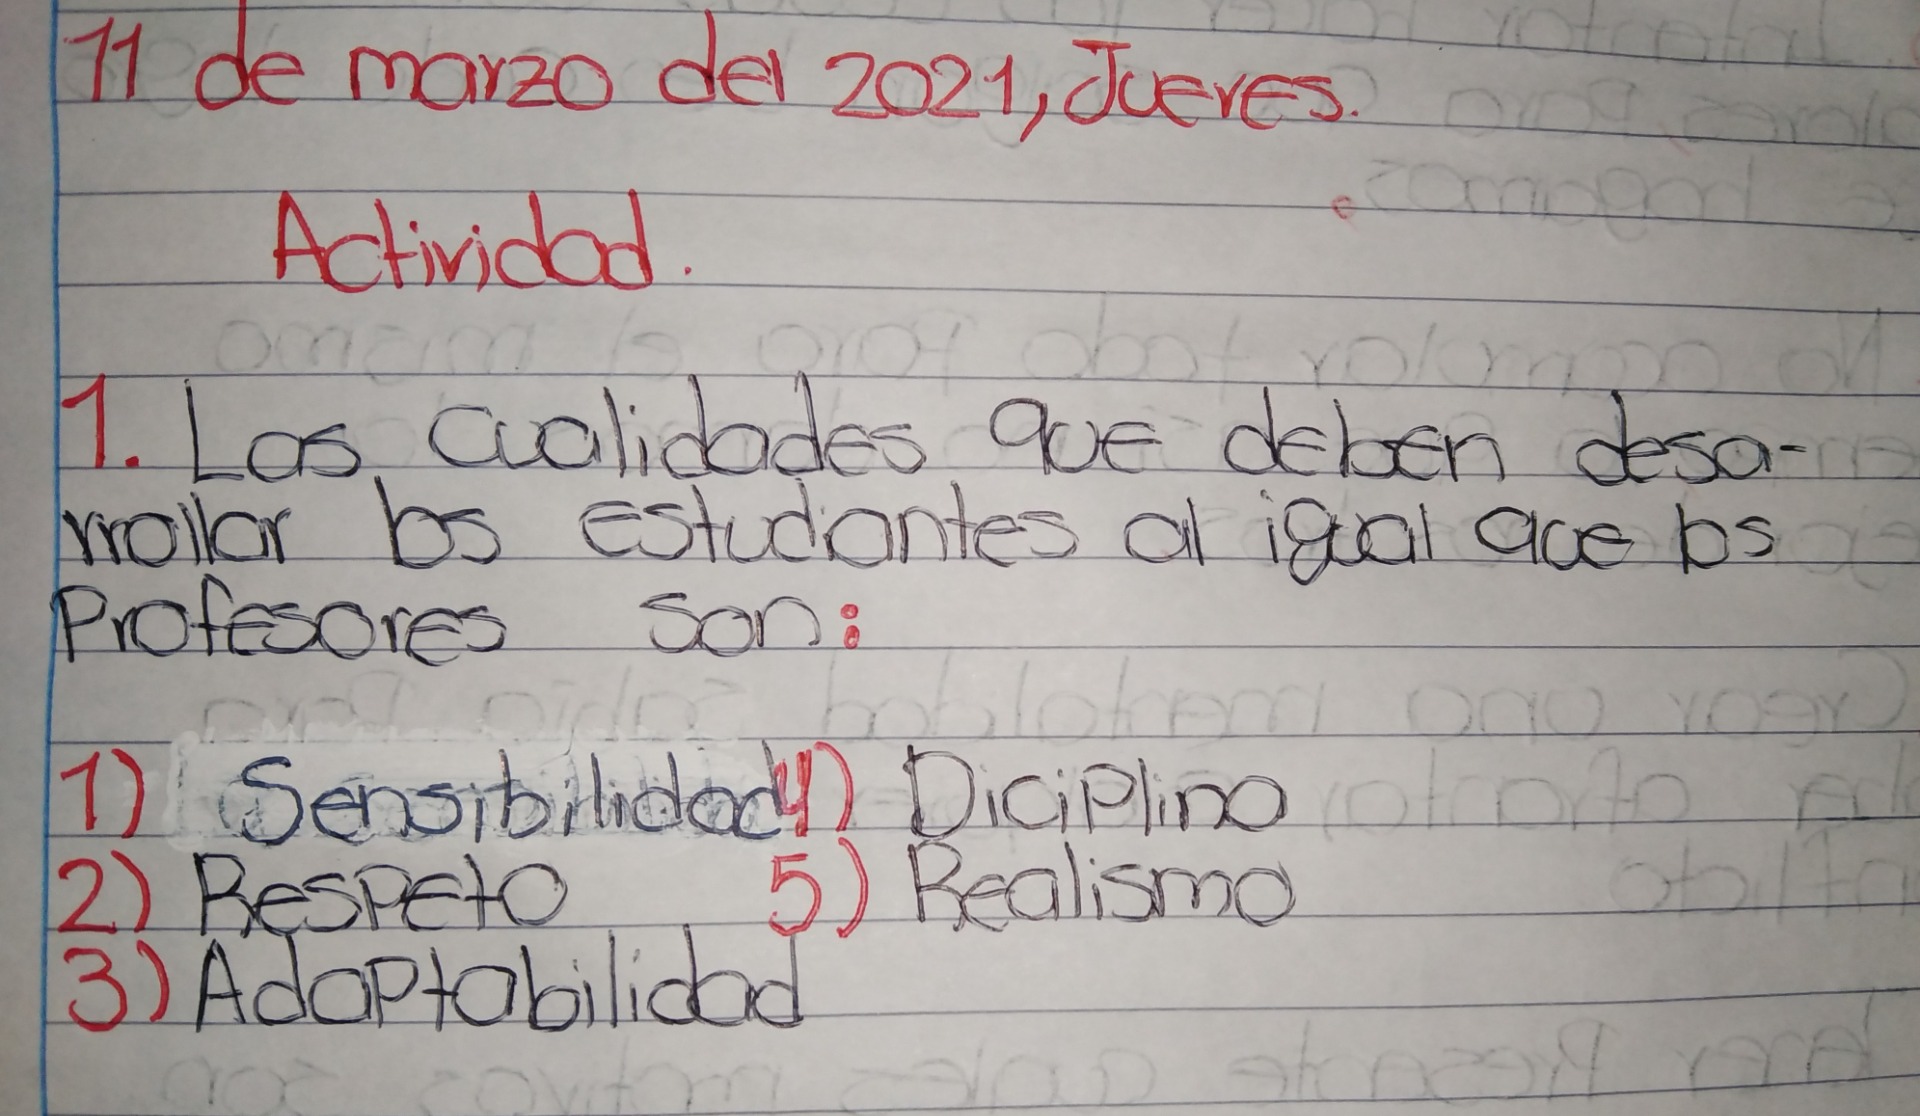 11 de marzo del 2021, Jueves.
Actividad.
1. Las cualidades que deben desa-
rrollar los estudiantes al igual que los
Profesores son:
1) Sensibilidad 4) Diciplina
2) Respeto 5) Realismo
3) Adaptabilidad